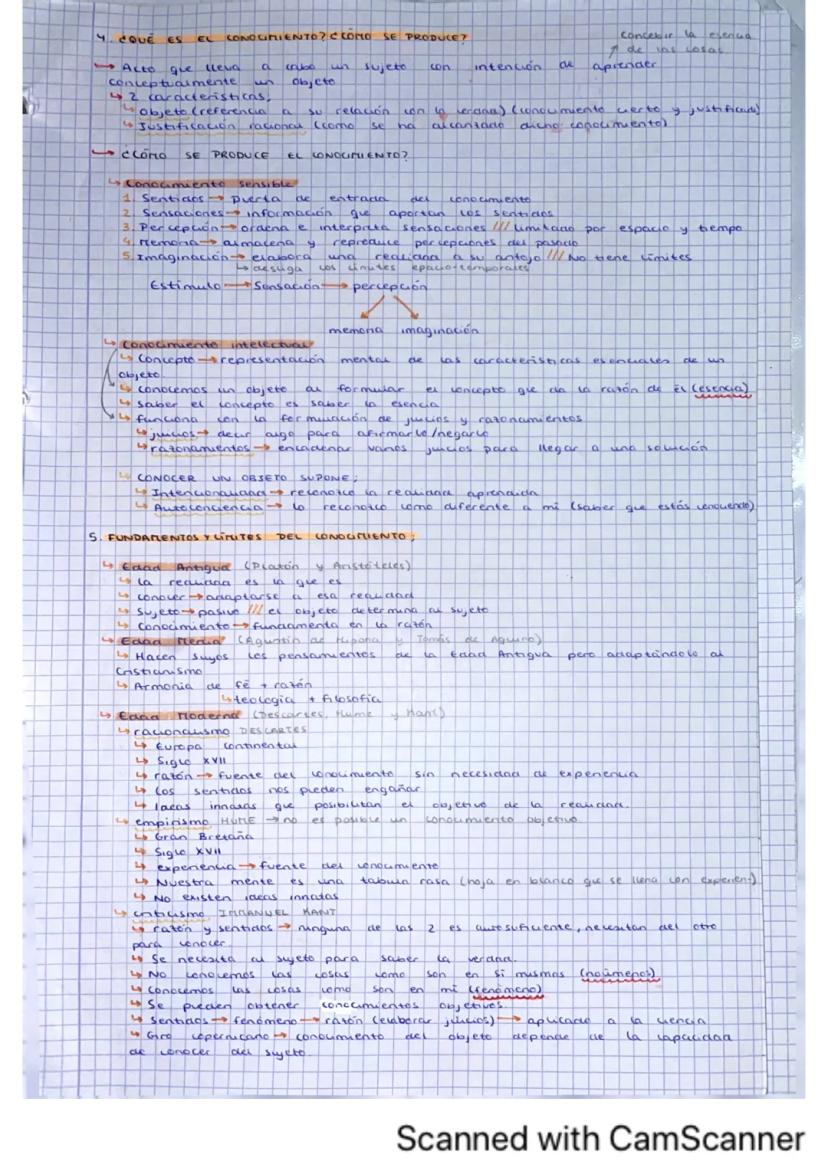 4. ¿QUÉ ES EL CONOCIMIENTO? ¿CÓMO SE PRODUCE?
concebir la esencia
de las cosas
→ Acto que lleva a cabo un sujeto con intención de aprender
conceptualmente un objeto
↳ 2 características:
↳ Objeto (referencia a su relación con la verdad) (conocimiento cierto y justificado)
↳ Justificación racional (como se ha alcanzado dicho conocimiento)
→ ¿CÓMO SE PRODUCE EL CONOCIMIENTO?
↳ Conocimiento sensible
1. Sentidos → puerta de entrada del conocimiento
2. Sensaciones → información que aportan los sentidos
3. Percepción → ordena e interpreta sensaciones /// limitado por espacio y tiempo
4. Memoria → almacena y reproduce percepciones del pasado
5. Imaginación → elabora una realidad a su antojo /// No tiene límites
↳ desliga los límites epacio-temporales
Estímulo → Sensación → percepción
memoria imaginación
↳ Conocimiento intelectual
↳ Concepto → representación mental de las características esenciales de un
objeto.
↳ conocemos un objeto al formular el concepto que da la razón de Él (esencia)
↳ saber el concepto es saber la esencia
↳ funciona con la formulación de juicios y razonamientos
↳ juicios → decir algo para afirmarlo/negarlo
↳ razonamientos → encadenar varios juicios para llegar a una solución
↳ CONOCER UN OBJETO SUPONE:
↳ Intencionalidad → reconozco la realidad aprendida
↳ Autoconciencia → lo reconozco como diferente a mi (saber que estás conociendo)
5. FUNDAMENTOS Y LÍMITES DEL CONOCIMIENTO:
↳ Edad Antigua (Platón y Aristóteles)
↳ La realidad es la que es
↳ conocer → adaptarse a esa realidad
↳ Sujeto → pasivo /// el objeto determina al sujeto
↳ Conocimiento → fundamenta en la razón
↳ Edad Media (Agustín de Hipona y Tomás de Aquino)
↳ Hacen suyos los pensamientos de la Edad Antigua pero adaptándolo al
Cristianismo
↳ Armonía de fé + razón
↳ teología + filosofía
↳ Edad Moderna (Descartes, Hume y Kant)
↳ racionalismo DESCARTES
↳ Europa continental
↳ Siglo XVII
↳ razón → fuente del conocimiento sin necesidad de experiencia
↳ Los sentidos nos pueden engañar
↳ Ideas innatas que posibilitan el objetivo de la realidad.
↳ empirismo HUME → no es posible un conocimiento objetivo
↳ Gran Bretaña
↳ Siglo XVII
↳ experiencia → fuente del conocimiento
↳ Nuestra mente es una tabula rasa (hoja en blanco que se llena con experien.)
↳ No existen ideas innatas
↳ criticismo IMMANUEL KANT
↳ razón y sentidos → ninguna de las 2 es autosuficiente, necesitan del otro
para conocer
↳ Se necesita al sujeto para saber la verdad.
↳ NO conocemos las cosas como son en si mismas (noúmenos)
↳ Conocemos las cosas como son en mi (fenómeno)
↳ Se pueden obtener conocimientos objetivos
↳ Sentidos → fenómeno → razón (elaborar juicios) → aplicado a la ciencia
↳ Giro copernicano → conocimiento del objeto depende de la capacidad
de conocer del sujeto
Scanned with CamScanner